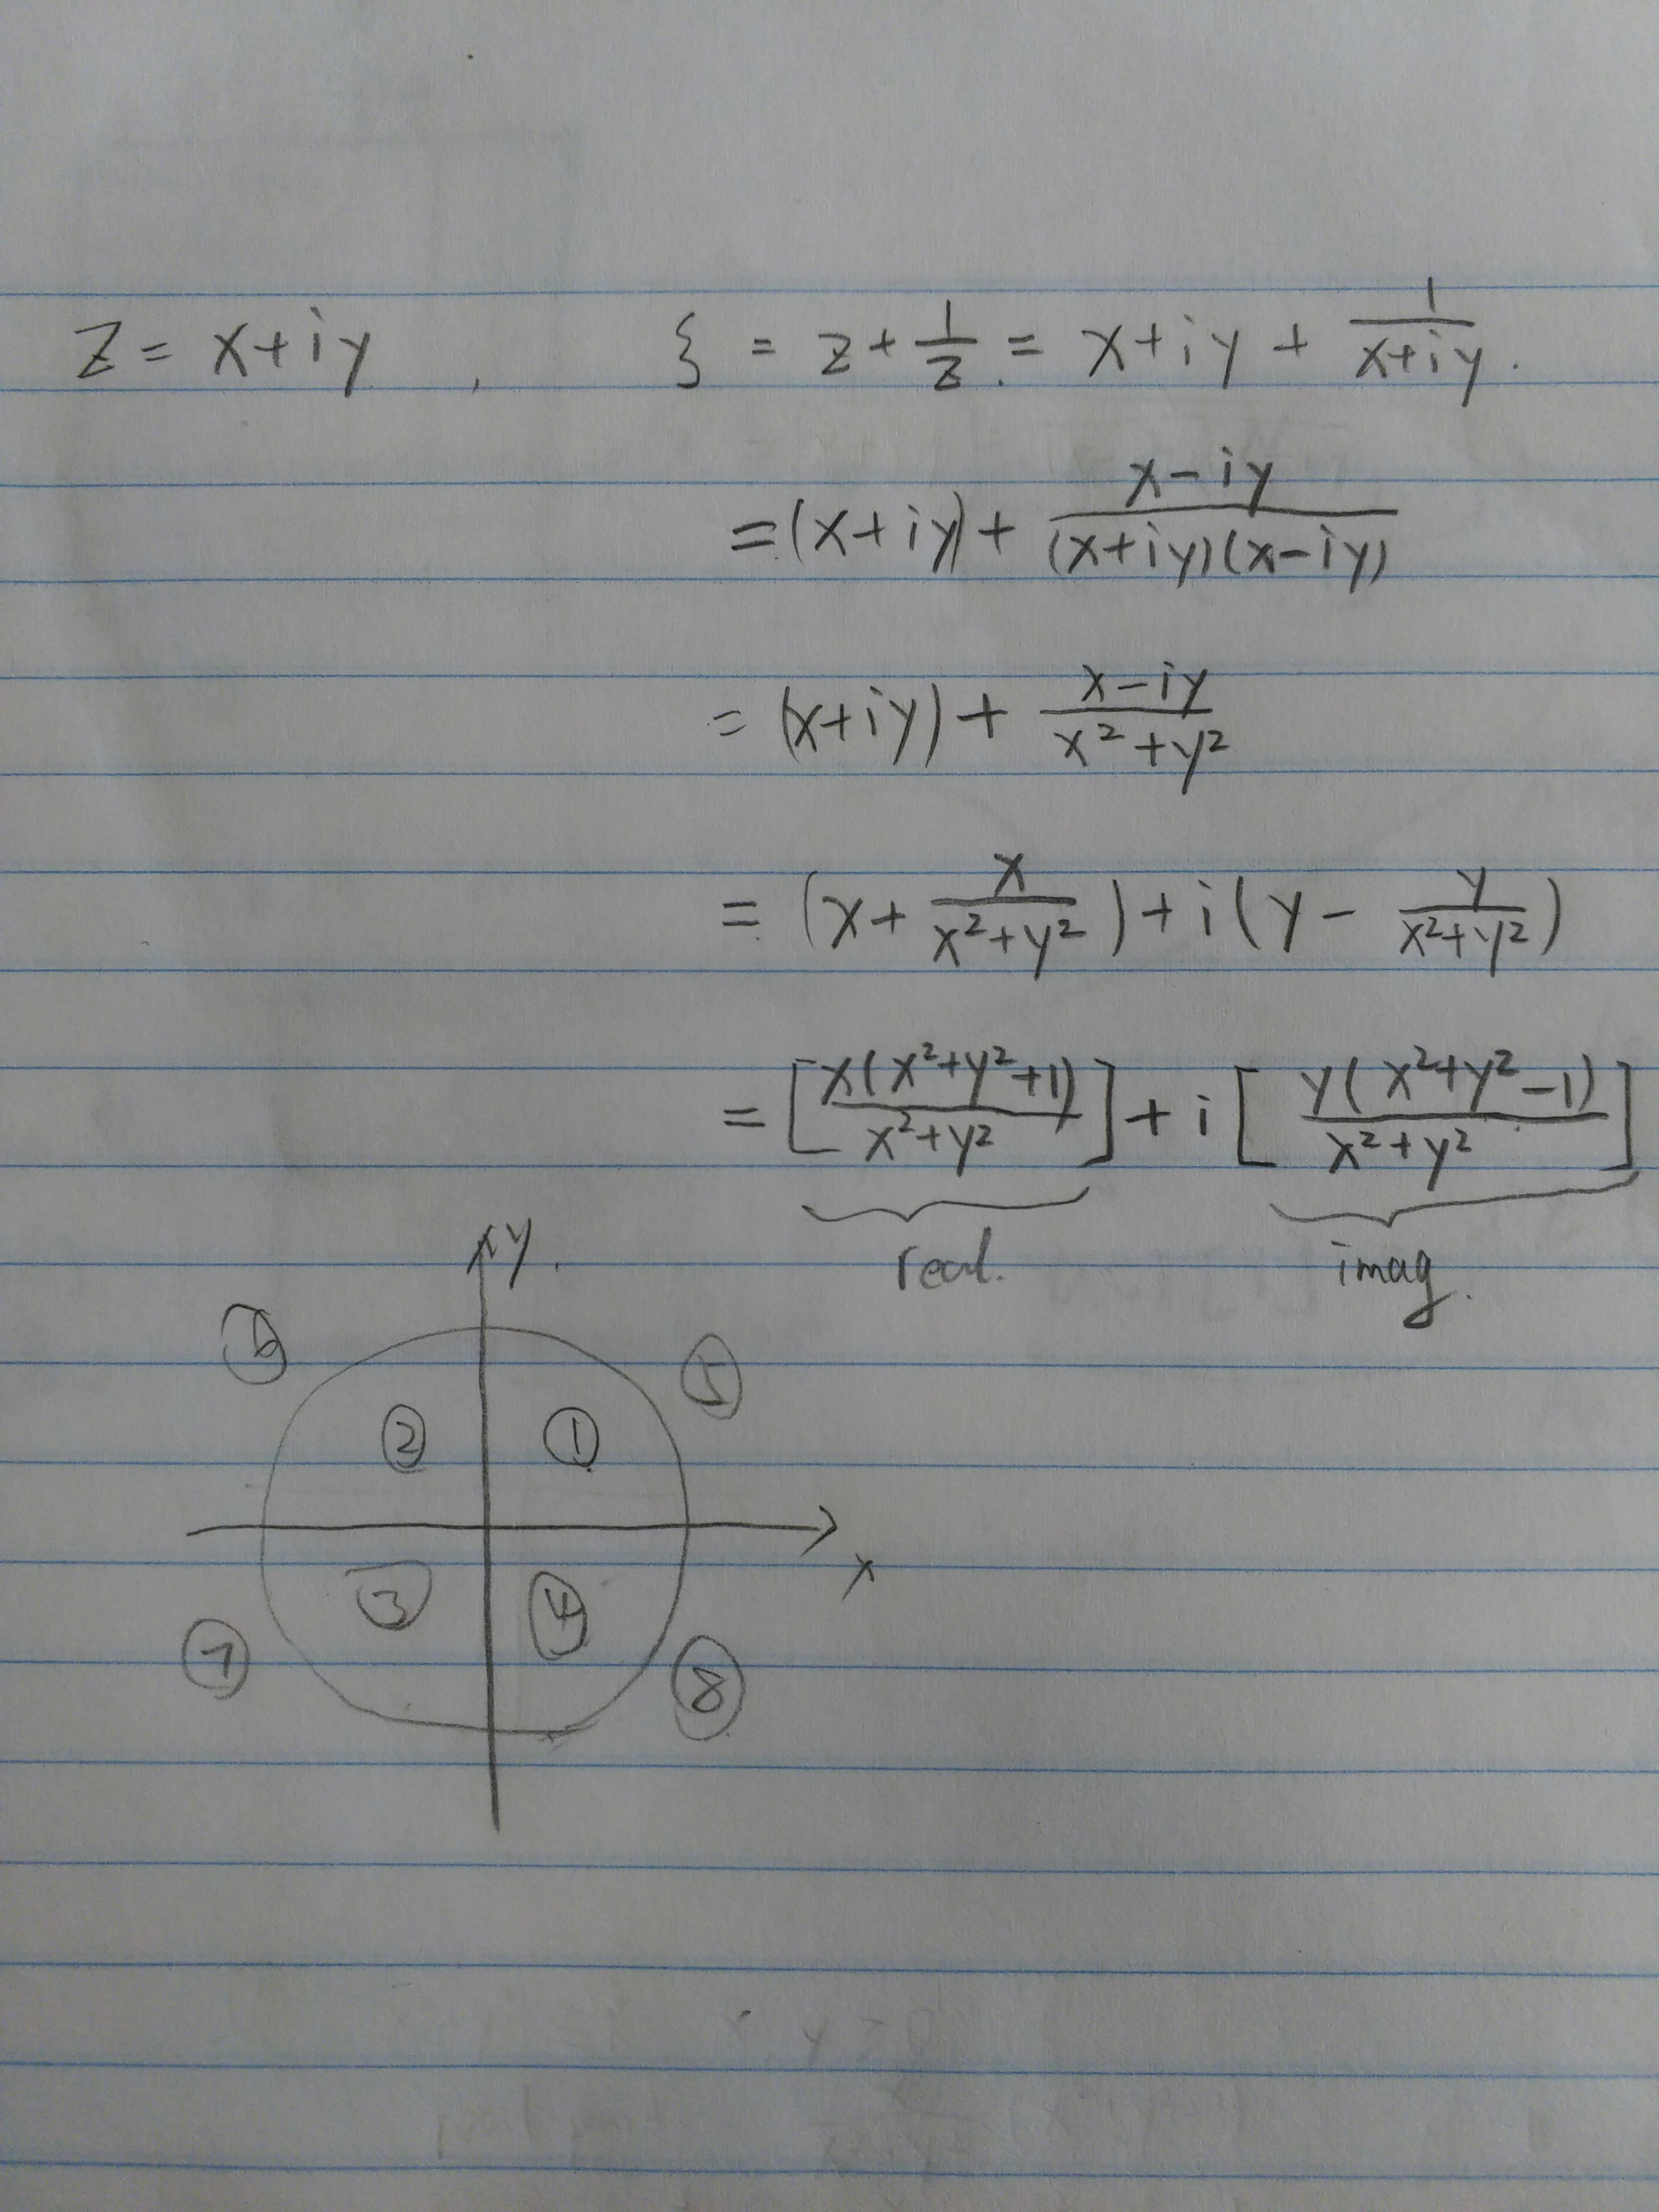 z = x+iy , ξ = z + 1/z = x+iy + 1/(x+iy).
= (x+iy) + (x-iy)/((x+iy)(x-iy))
= (x+iy) + (x-iy)/(x²+y²)
= (x + x/(x²+y²)) + i(y - y/(x²+y²))
= [x(x²+y²+1)/(x²+y²)] + i[y(x²+y²-1)/(x²+y²)]
real. imag.
y.
⑥ ⑤
② ①
x
③ ④
⑦ ⑧